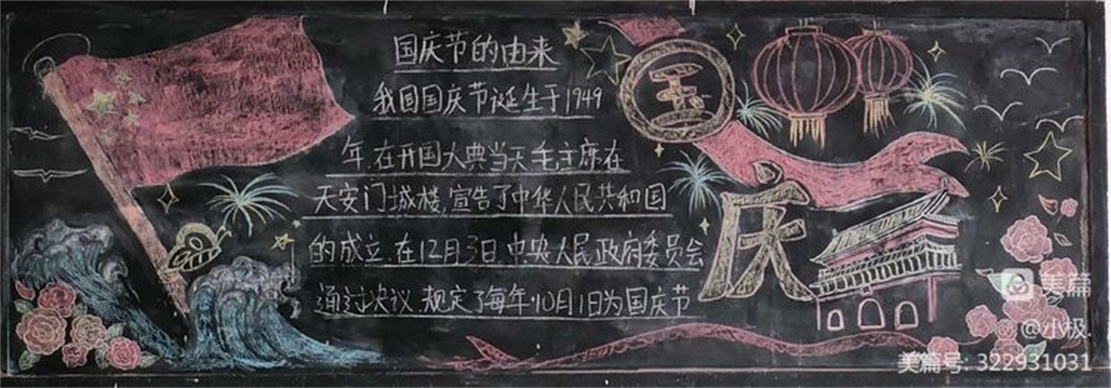 国庆节的由来
我国国庆节诞生于1949
年,在开国大典当天毛主席在
天安门城楼,宣告了中华人民共和国
的成立.在12月3日.中央人民政府委员会
通过决议.规定了每年.10月1日为国庆节
国
庆
美篇
@小极
美篇号: 322931031